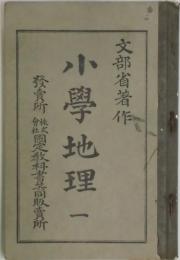 文部省著作
小學地理 一
發賣所 株式會社 國定教科書共同販賣所